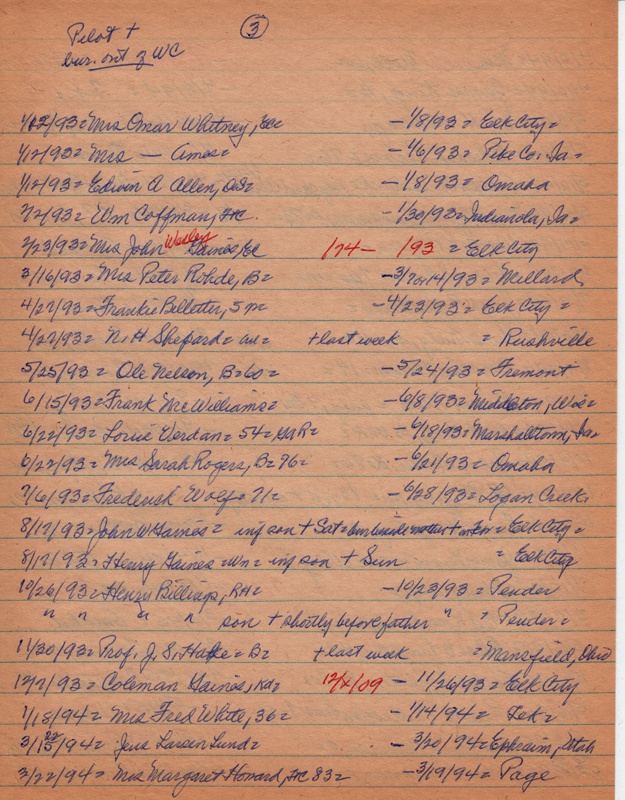 Pilot +
bur. out of WC
3
1/12/93 = Mrs Omar Whitney, EC = - 1/8/93 = Elk City =
1/12/93 = Mrs — Ames = - 1/6/93 = Pike Co. Ia =
1/12/93 = Edwin A Allen, - 1/8/93 = Omaha
2/93 = Wm Coffman, - 1/30/93 = Indianola, Ia =
2/23/93 = Mrs John Wesley Gaines, EC 1/24 - 1/93 = Elk City
3/16/93 = Mrs Peter Rohde, B = - 3/7 or 14/93 = Millard
4/27/93 = Frankie Billetter, 5 m - 4/23/93 = Elk City =
4/27/93 = N. H Shepard = au = + last week = Rushville
5/25/93 = Ole Nelson, B = 60 = - 5/24/93 = Fremont
6/15/93 = Frank McWilliams = - 6/8/93 = Middleton, Wis =
6/22/93 = Louie Verdan = 54 = GAR = - 6/18/93 = Marshalltown, Ia =
6/27/93 = Mrs Sarah Rogers, B = 76 = - 6/21/93 = Omaha
7/6/93 = Frederick Wolf = 71 = - 6/28/93 = Logan Creek,
8/17/93 = John W Gaines = inf son + Sat = bur beside mother = Elk City =
8/17/93 = Henry Gaines = Wn = inf son + Sun = Elk City
10/26/93 = Henry Billiaps, RA = - 10/23/93 = Pender
" " " " son + shortly before father " = Pender =
11/30/93 = Prof. J. S. = B = + last week = Mansfield, Ohio
12/7/93 = Coleman Gaines, Kd = 12/x/09 - 11/26/93 = Elk City
1/18/94 = Mrs Fred White, 36 = - 1/14/94 = Tek =
3/22/94 = Jens Larsen Lund = - 3/20/94 = Ephraim, Utah
3/22/94 = Mrs Margaret Howard, FC 83 = - 3/19/94 = Page